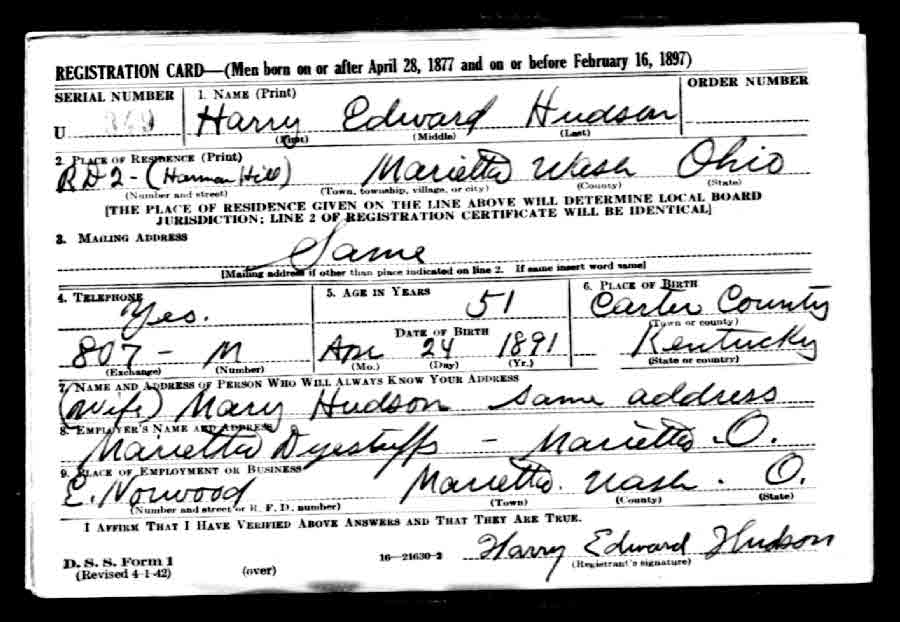 REGISTRATION CARD—(Men born on or after April 28, 1877 and on or before February 16, 1897)
SERIAL NUMBER 1. NAME (Print) ORDER NUMBER
U Harry Edward Hudson
(First) (Middle) (Last)
2. PLACE OF RESIDENCE (Print)
RD2 - (Harmar Hill) Marietta Wash Ohio
(Number and street) (Town, township, village, or city) (County) (State)
[THE PLACE OF RESIDENCE GIVEN ON THE LINE ABOVE WILL DETERMINE LOCAL BOARD
JURISDICTION; LINE 2 OF REGISTRATION CERTIFICATE WILL BE IDENTICAL]
3. MAILING ADDRESS
Same
[Mailing address if other than place indicated on line 2. If same insert word same]
4. TELEPHONE 5. AGE IN YEARS 6. PLACE OF BIRTH
Yes. 51 Carter County
DATE OF BIRTH (Town or county)
807 - M Apr 24 1891 Kentucky
(Exchange) (Number) (Mo.) (Day) (Yr.) (State or country)
7. NAME AND ADDRESS OF PERSON WHO WILL ALWAYS KNOW YOUR ADDRESS
(Wife) Mary Hudson same address
8. EMPLOYER'S NAME AND ADDRESS
Marietta Dyestuffs - Marietta - O.
9. PLACE OF EMPLOYMENT OR BUSINESS
E. Norwood Marietta. Wash. O.
(Number and street or R. F. D. number) (Town) (County) (State)
I AFFIRM THAT I HAVE VERIFIED ABOVE ANSWERS AND THAT THEY ARE TRUE.
Harry Edward Hudson
D. S. S. Form 1 16—21630-2 (Registrant's signature)
(Revised 4-1-42) (over)